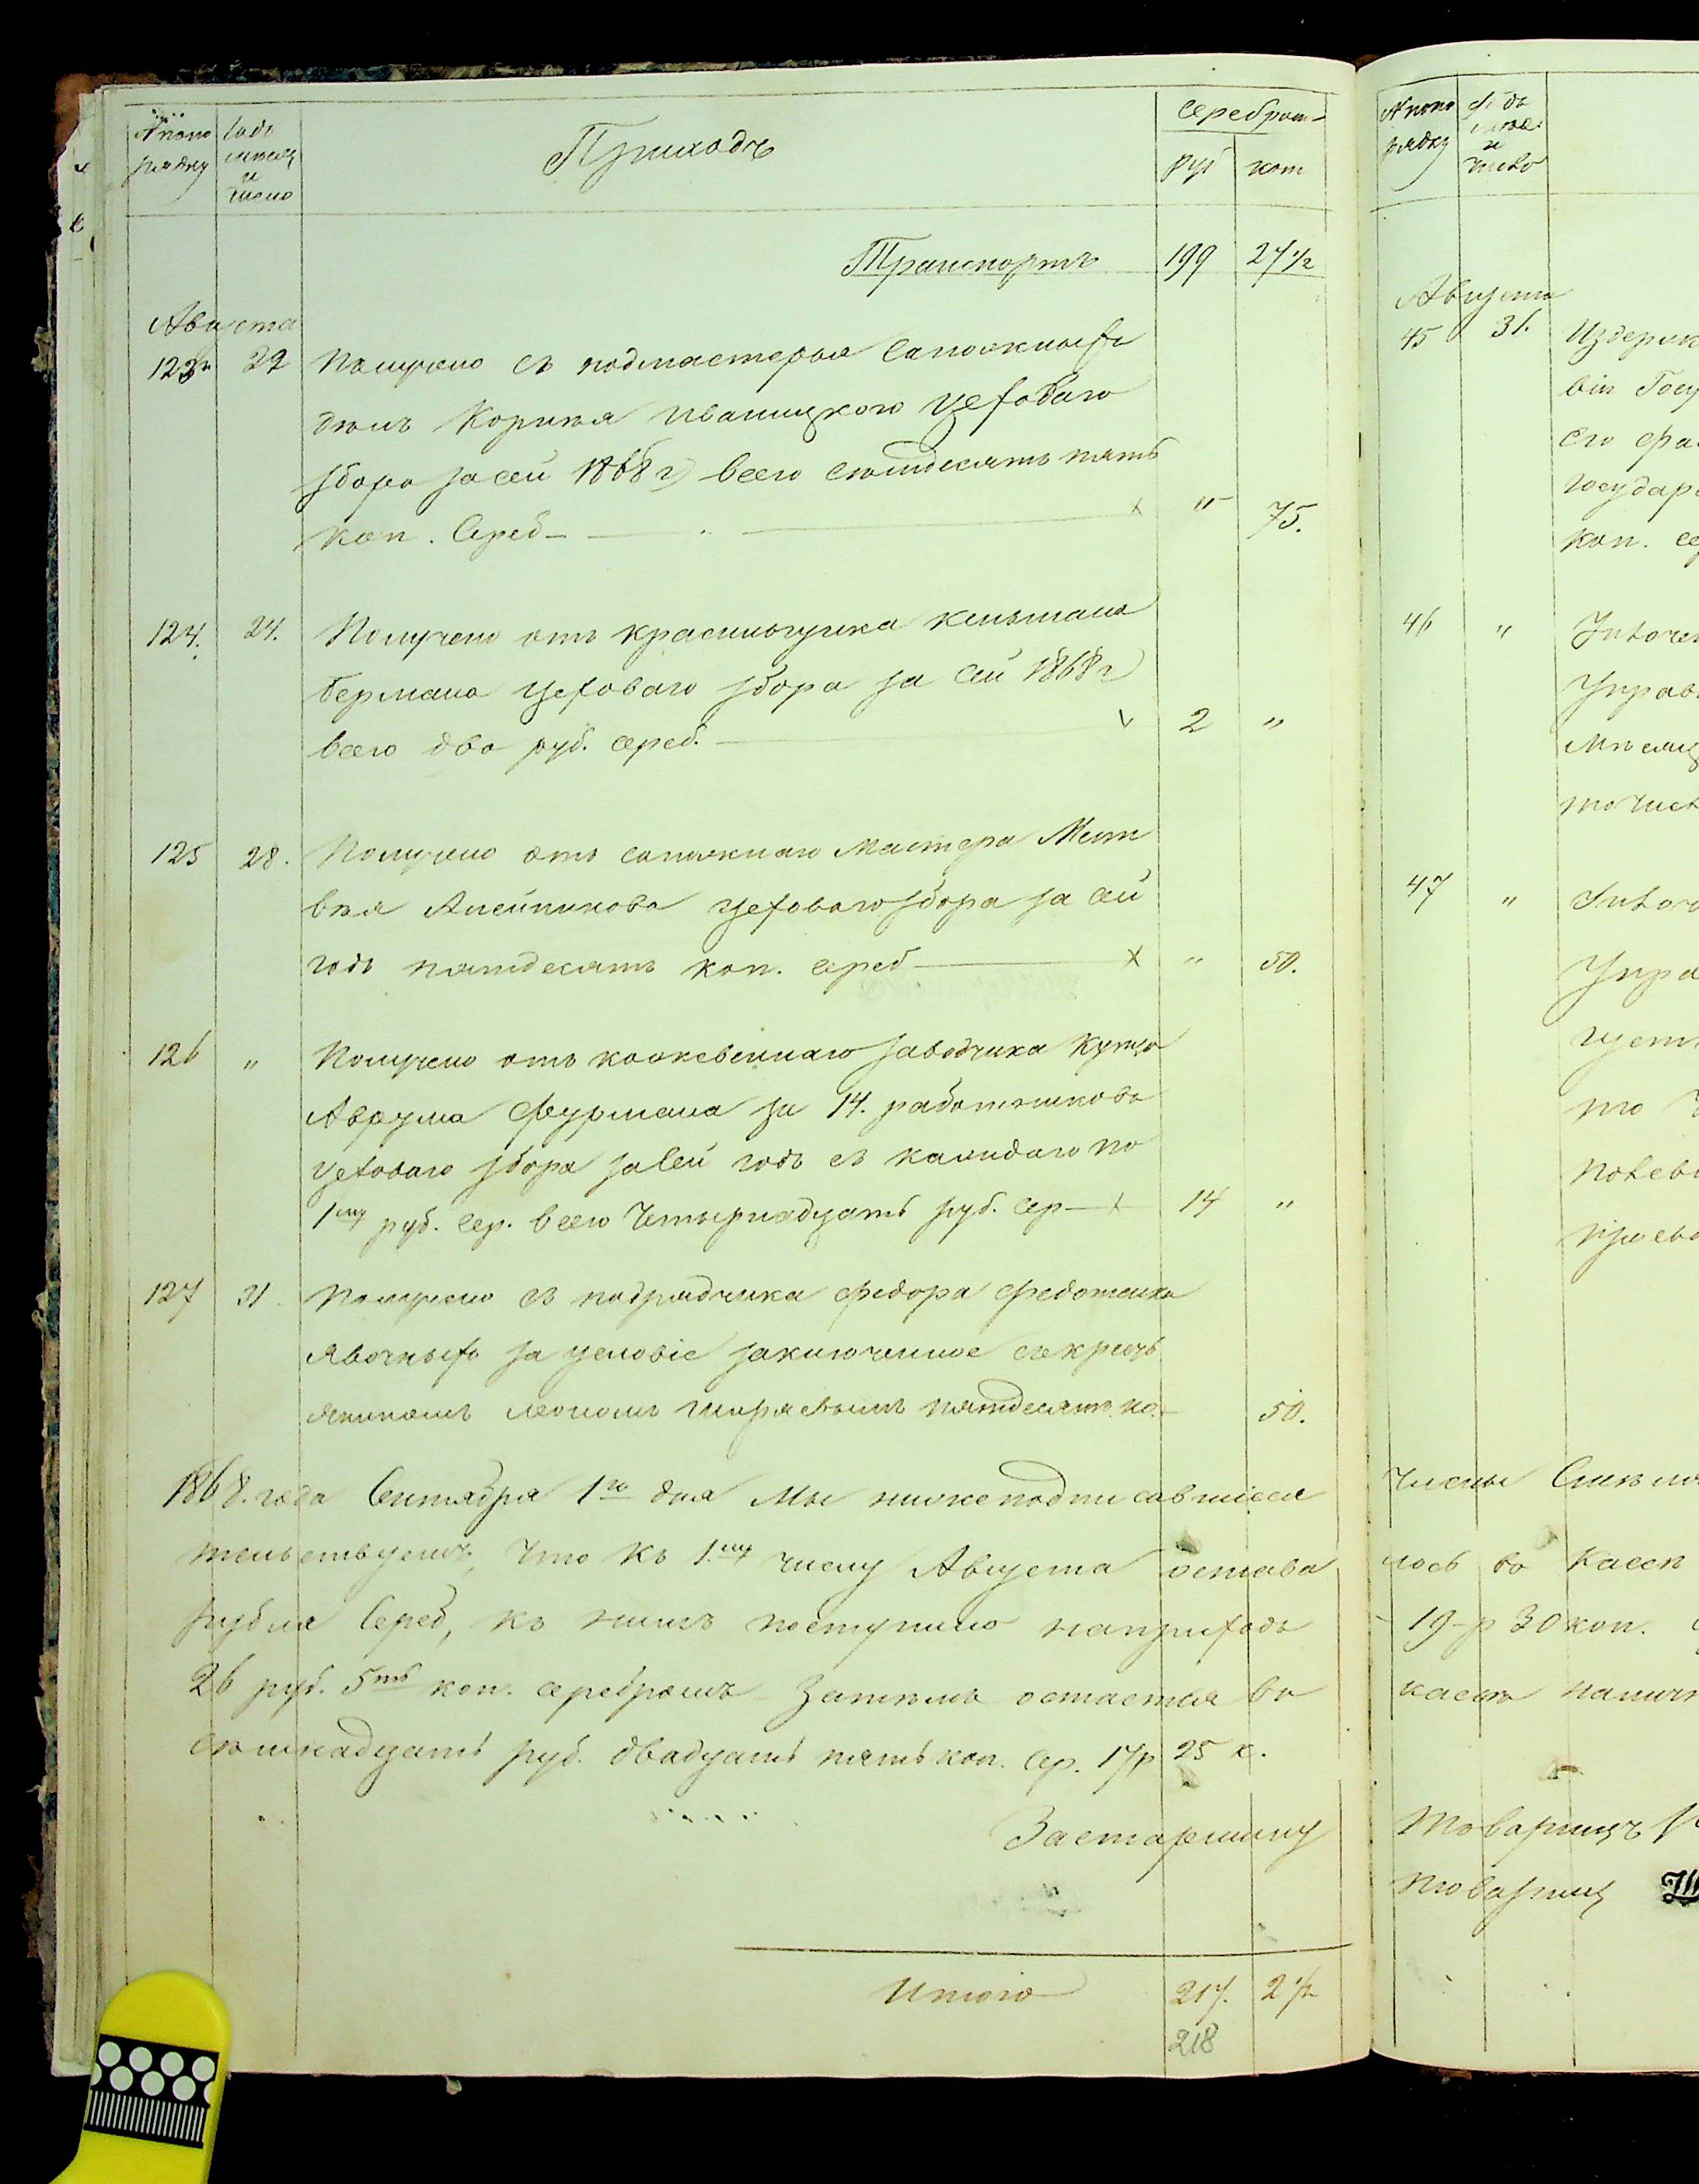 № по по
рядку
Годъ
месяц
и
число
Приходъ
Серебром
руб
коп
Транспортъ 199 27 1/2
Августа
123 22 Получено съ подмастерья сапожныхъ
делъ Корнея Иваницкого цеховаго
збора за сей 1868 г всего семдесятъ пять
коп. Сереб — " 75.
124. 24. Получено отъ красильщика
Бермана цеховаго збора за сей 1868 г
всего два руб. сереб. 2 "
125 28. Получено отъ сапожнаго мастера Мат
вея Алейникова цеховаго збора за сей
годъ пятдесятъ коп. сереб — " 50.
126 " Получено отъ кожевеннаго заводчика купца
Аврума Фурмана за 14. работниковъ
цеховаго збора за сей годъ съ каждаго по
1му руб. сер. всего Четырнадцать руб. сер — 14 "
127 31. Получено съ подрядчика Федора Федотенка
явочныхъ за условіе заключенное съ крестъ
яниномъ пятдесятъ ко. 50.
1868. года Сентября 1го дня Мы нижеподписавшіеся
тельствуемъ, что къ 1.му числу Августа остава
рубля Сереб, къ нимъ поступило на приходъ
26 руб. 5ть коп. серебромъ Затемъ остается въ
семнадцать руб. двадцать пять коп. сер. 17 р 25 к.
За старшину
Итого 217. 2 1/2
218
№ по по
рядку
Годъ
и
число
Августа
45 31. Издерж
его фа
государ
коп. се
46 "
Управ
Месяц
то числ
47 "
Упра
то
лось въ кассе
19 р 30 коп.
кассе налич
Товарищъ
товарищ